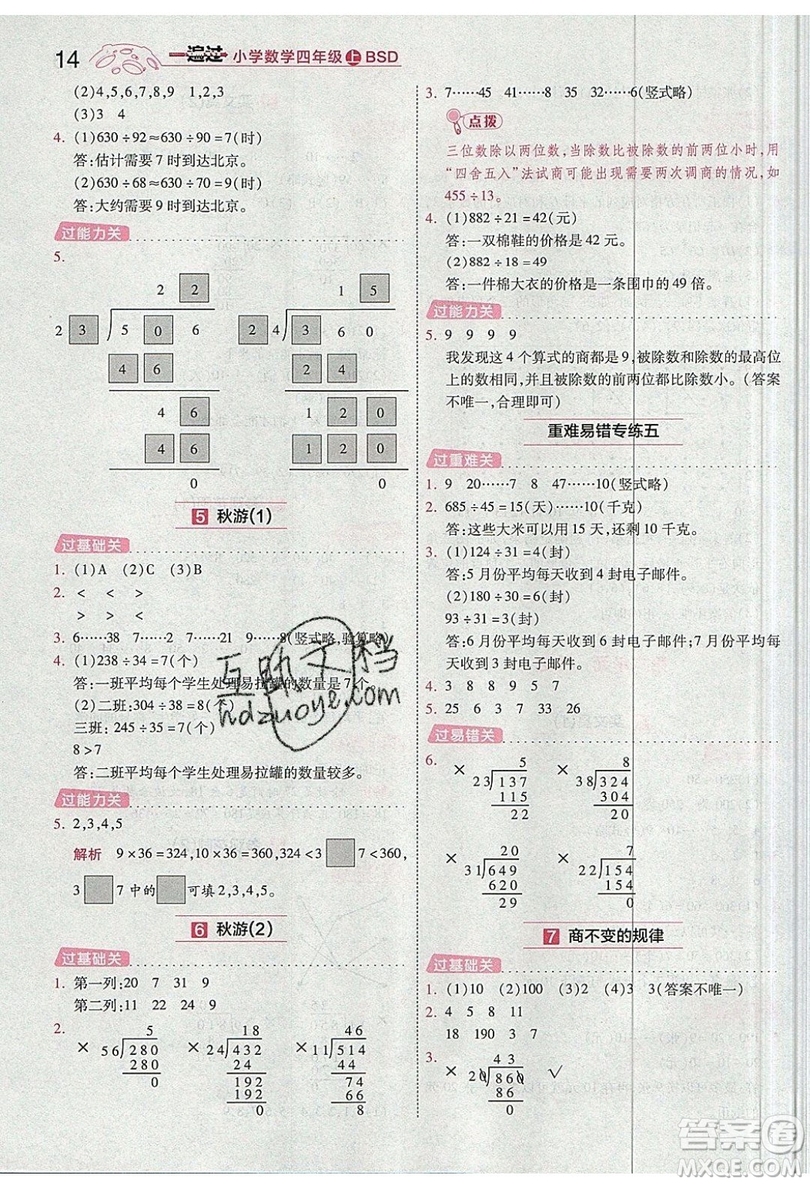 14 一遍过 小学数学四年级上 BSD
(2)4,5,6,7,8,9 1,2,3
4. (1)630÷92≈630÷90=7(时)
答:估计需要 7 时到达北京。
(2)630÷68≈630÷70=9(时)
答:大约需要 9 时到达北京。
过能力关
5.
2 2
2 3 5 0 6
4 6
4 6
4 6
0
1 5
2 4 3 6 0
2 4
1 2 0
1 2 0
0
5 秋游(1)
过基础关
1. (1)A (2)C (3)A
2. < < <
> > >
3. 6……38 7……21 9……8(竖式略,验算略)
4. (1)238÷34=7(个)
答:一班平均每个学生处理易拉罐的数量是 7 个。
(2)二班:304÷38=8(个)
三班:245÷35=7(个)
8>7
答:二班平均每个学生处理易拉罐的数量较多。
过能力关
5. 2,3,4,5
解析 9×36=324,10×36=360,324<3□7<360,
□7 中的□可填 2,3,4,5。
6 秋游(2)
过基础关
1. 第一列:20 7 31 9
第二列:11 22 24 9
2.
× 5
56 280
280
0
× 18
24 432
24
192
192
0
× 46
11 514
44
74
66
8
3. 7……45 41……8 32……6(竖式略)
点拨
三位数除以两位数,当除数比被除数的前两位小时,用
“四舍五入”法试商可能出现需要两次调商的情况,如
455÷13。
4. (1)882÷21=42(元)
答:一双棉鞋的价格是 42 元。
(2)882÷18=49
答:一件棉大衣的价格是一条围巾的 49 倍。
过能力关
5. 9 9 9 9
我发现这 4 个算式的商都是 9,被除数和除数的最高位
上的数相同,并且被除数的前两位都比除数小。(答案
不唯一,合理即可)
重难易错专练五
过重难关
1. 9 20……7 8 47……10(竖式略)
2. 685÷45=15(天)……10(千克)
答:这些大米可以用 15 天,还剩 10 千克。
3. (1)124÷31=4(封)
答:5 月份平均每天收到 4 封电子邮件。
(2)180÷30=6(封)
93÷31=3(封)
答:6 月份平均每天收到 6 封电子邮件;7 月份平均
每天收到 3 封电子邮件。
4. 3 8 8 9 5 7
5. 25 6 23 7 33 26
过易错关
6.
× 5
23 137
115
22
× 8
38 324
304
20
× 20
31 649
620
29
× 7
22 154
154
0
7 商不变的规律
过基础关
1. (1)10 (2)100 (3)2 (4)3 3(答案不唯一)
2. 4 5 8 11
18 190 3 7
3.
× 43
20 860
860
0
√
互助文档
hdzuoye.com
答案圈
MXQE.COM